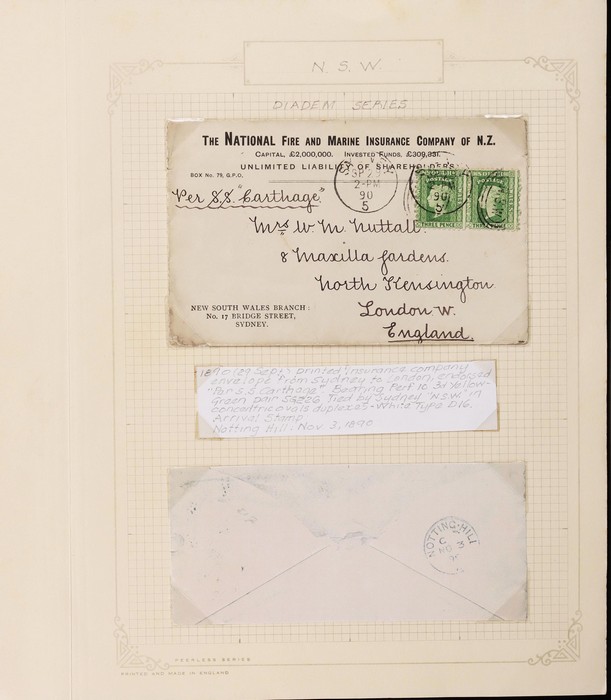 N. S. W.
DIADEM SERIES
THE NATIONAL FIRE AND MARINE INSURANCE COMPANY OF N.Z.
CAPITAL, £2,000,000. INVESTED FUNDS, £309,331.
UNLIMITED LIABILITY OF SHAREHOLDERS.
BOX No. 79, G.P.O.
SP 29
2-PM
90
5
90
5
POSTAGE
POSTAGE
THREE PENCE
THREE PENCE
Per S.S. "Carthage"
Mrs W. M. Nuttall.
8 Maxilla Gardens.
North Kensington
London W.
England.
NEW SOUTH WALES BRANCH:
No. 17 BRIDGE STREET,
SYDNEY.
1890 (29 Sept) printed insurance company
envelope from Sydney to London, endorsed
"Per S.S Carthage" Bearing Perf 10 3d Yellow-
Green pair SG226 Tied by Sydney 'N.S.W. in
concentric ovals duplexes - White Type D16.
Arrival Stamp
Notting Hill: Nov 3, 1890
NOTTING-HILL
C
NO 3
PEERLESS SERIES
PRINTED AND MADE IN ENGLAND